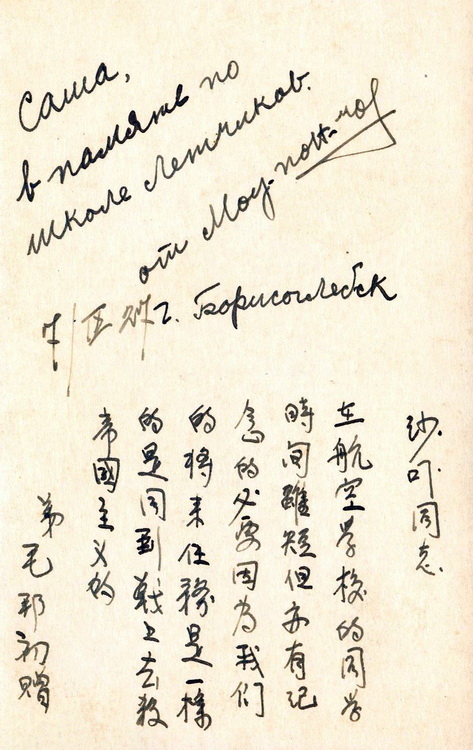 Саша,
в память по
школе летчиков.
от Моу-пон-чо
г. Борисоглебск
纱吓同志
在航空学校的同学
時间雖短但亦有记
念的必要因为我们
的将来任務是一樣
的是同到戰上去殺
帝國主义的
弟毛邦初赠